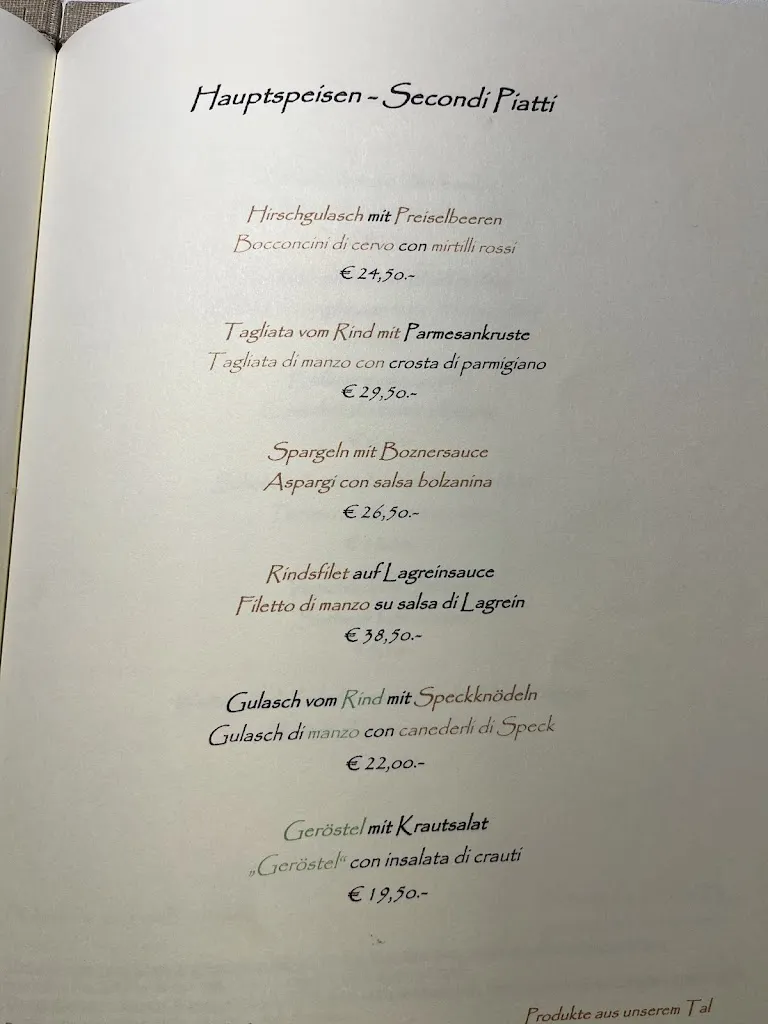 Hauptspeisen - Secondi Piatti
Hirschgulasch mit Preiselbeeren
Bocconcini di cervo con mirtilli rossi
€ 24,50.-
Tagliata vom Rind mit Parmesankruste
Tagliata di manzo con crosta di parmigiano
€ 29,50.-
Spargeln mit Boznersauce
Aspargi con salsa bolzanina
€ 26,50.-
Rindsfilet auf Lagreinsauce
Filetto di manzo su salsa di Lagrein
€ 38,50.-
Gulasch vom Rind mit Speckknödeln
Gulasch di manzo con canederli di Speck
€ 22,00.-
Geröstel mit Krautsalat
„Geröstel“ con insalata di crauti
€ 19,50.-
Produkte aus unserem Tal